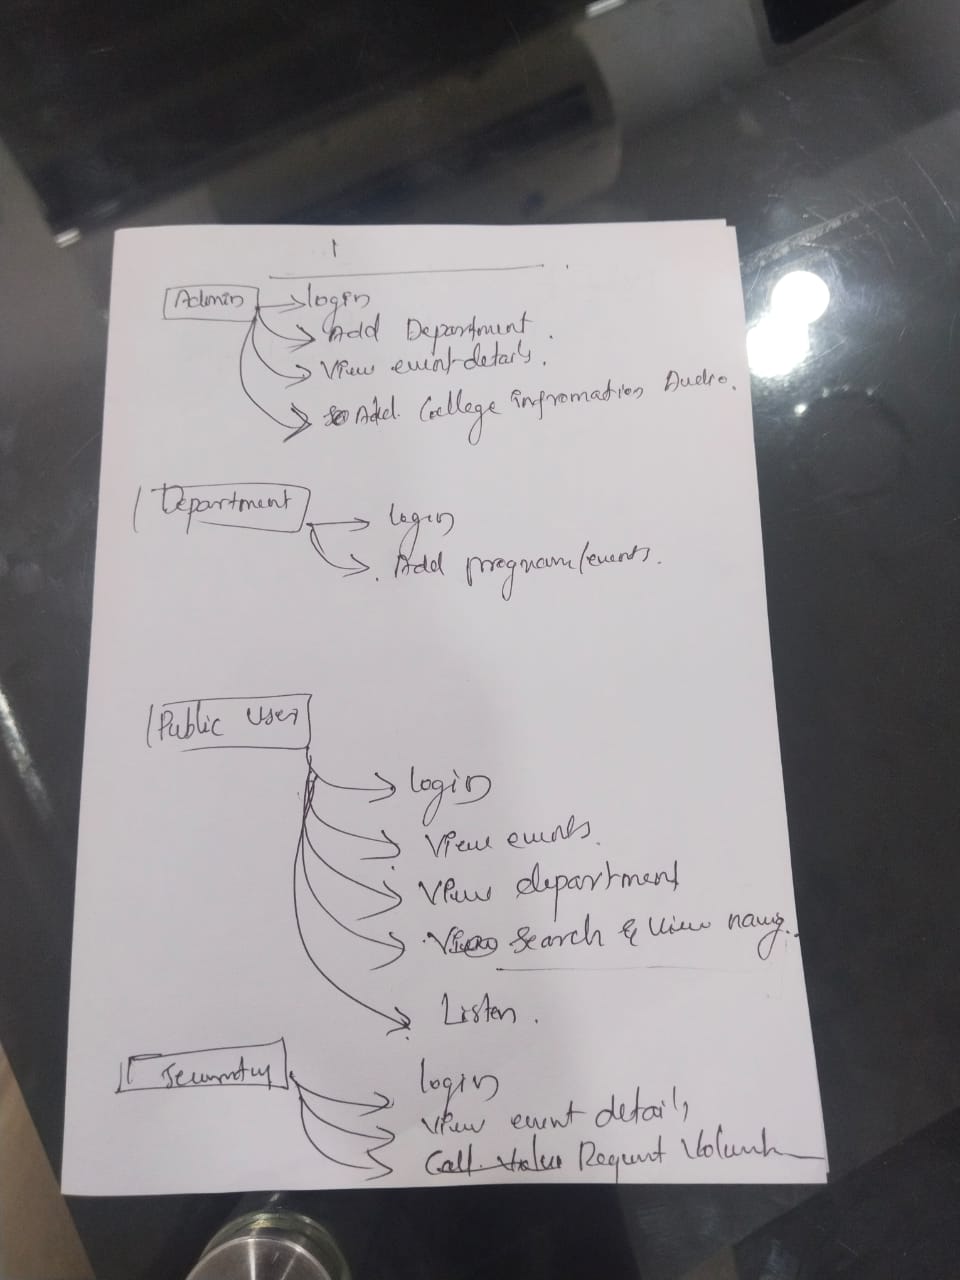 1
Admin
login
Add Department.
View event details.
Add College infromation Audio.
Department
login
Add program/events.
Public User
login
View events.
View department
Search & View navig.
Listen.
Security
login
View event details
Call Request Volunt